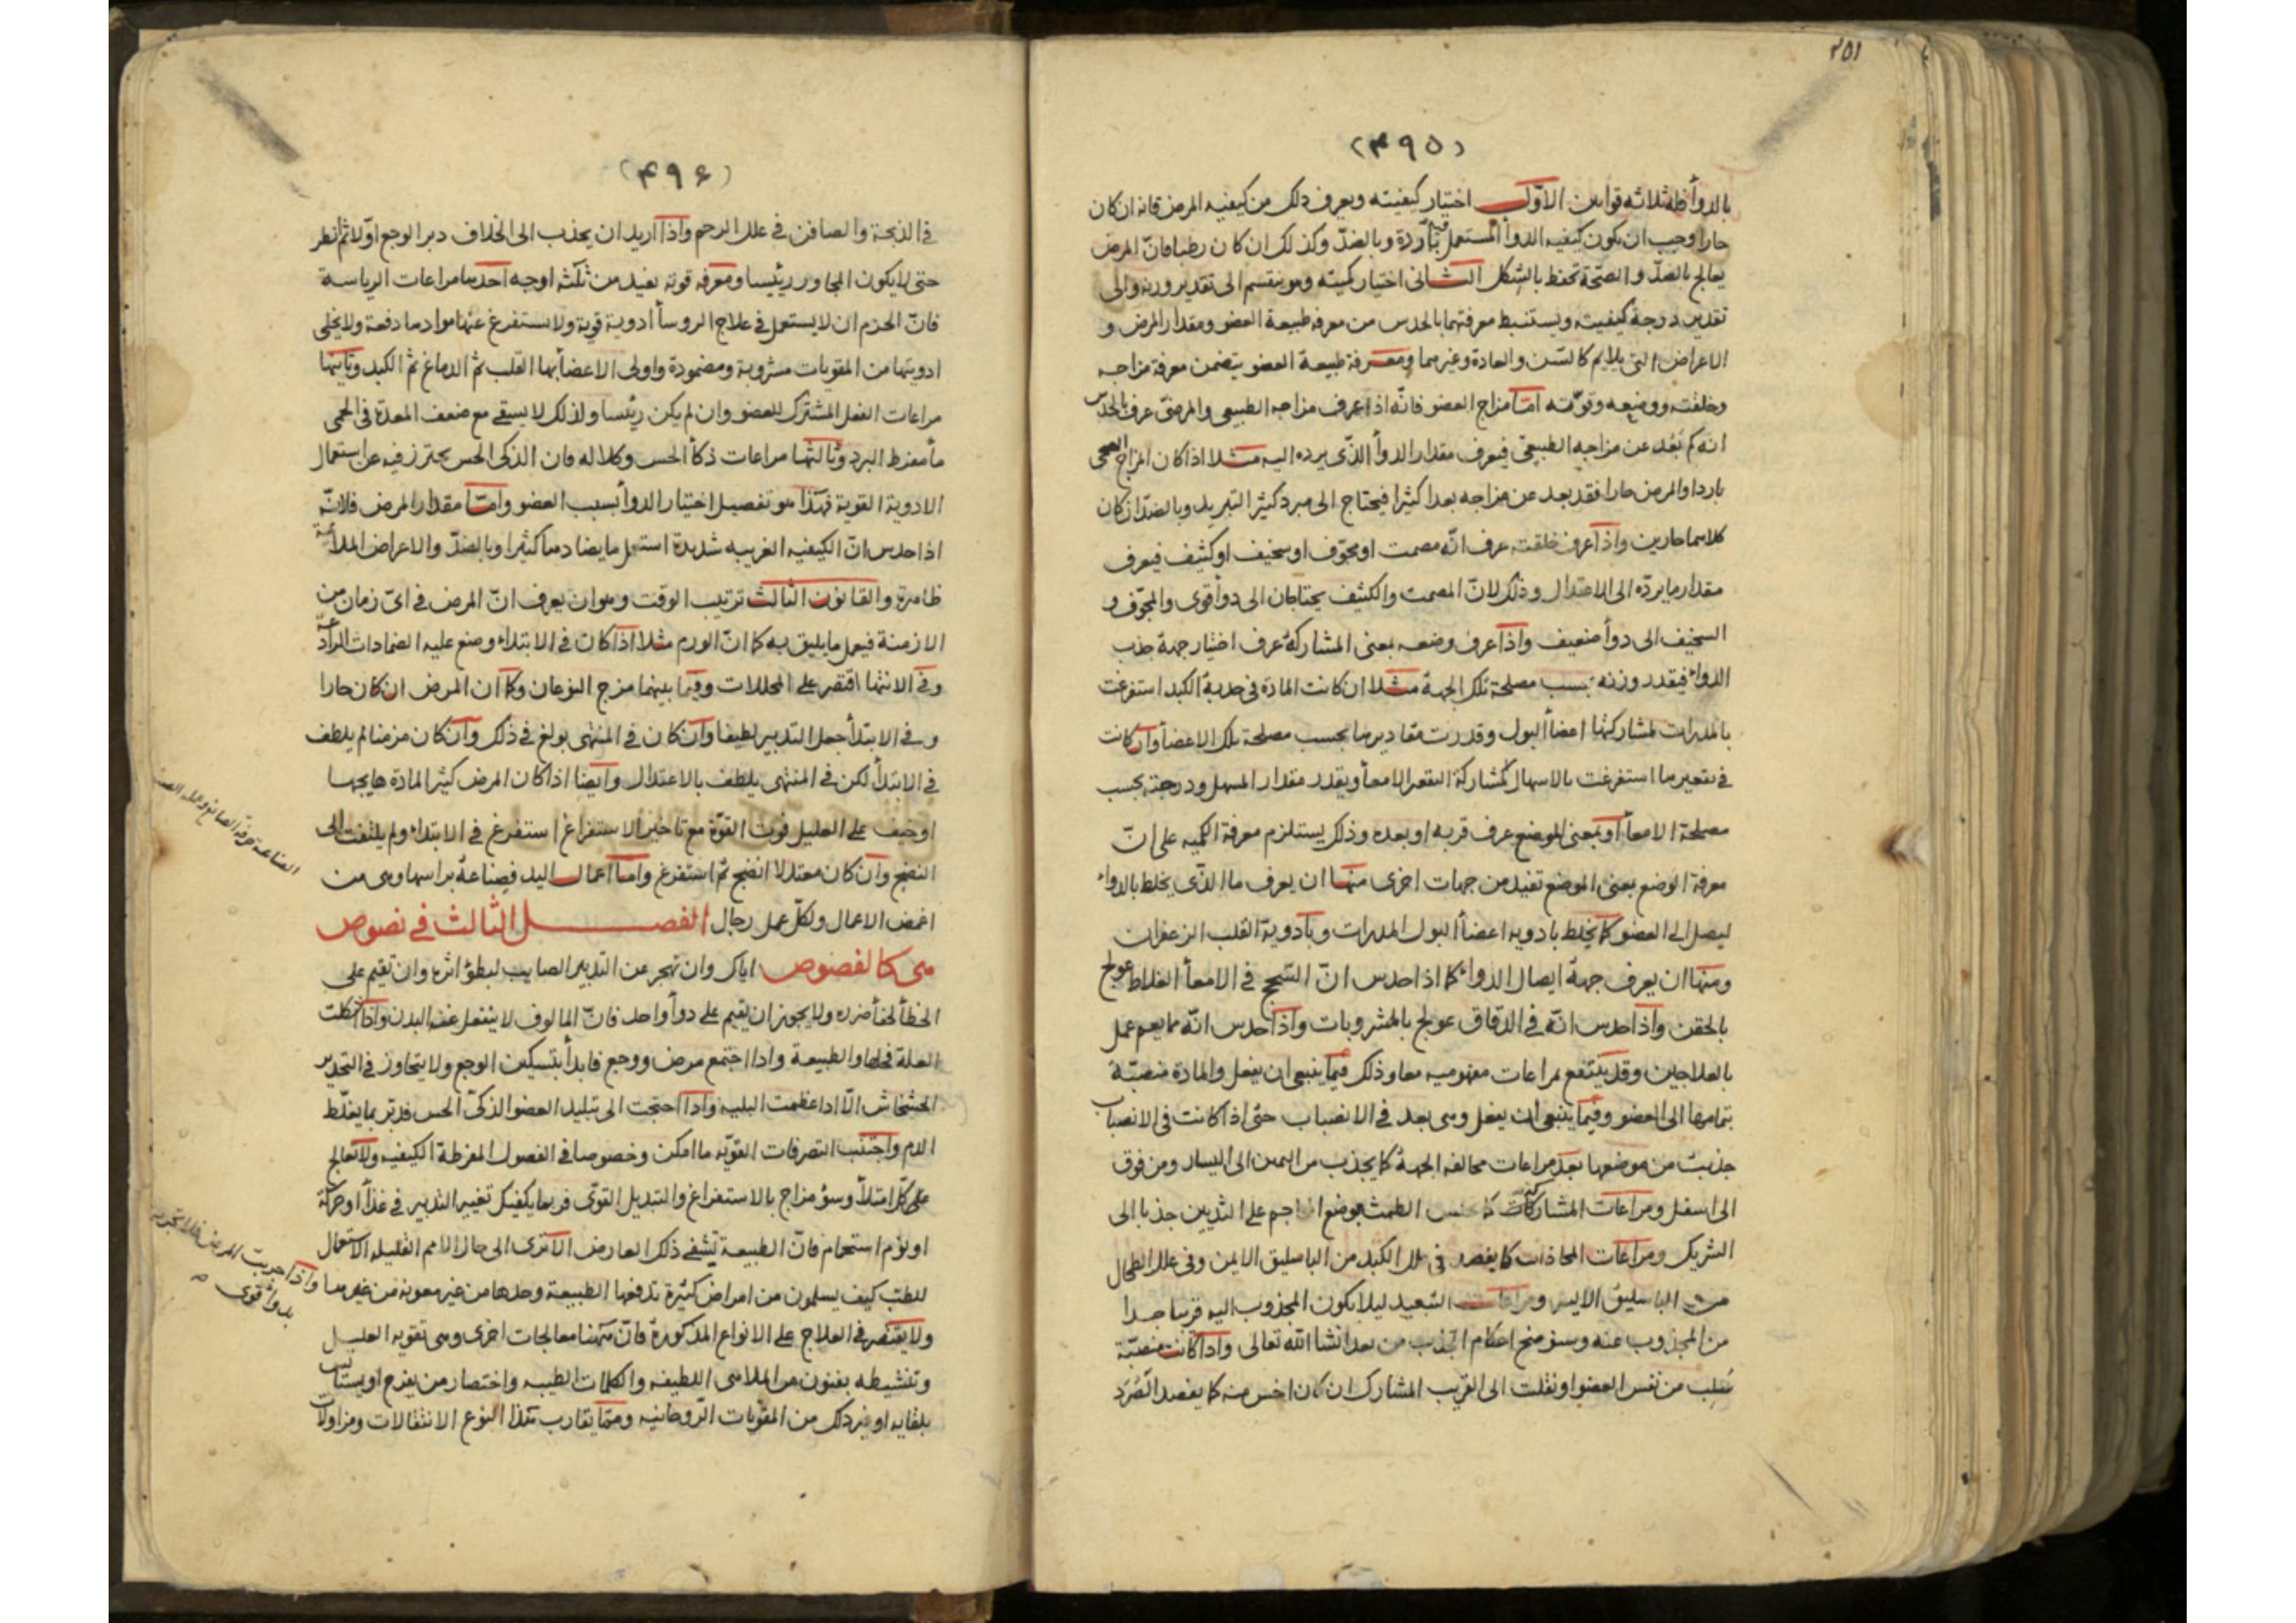 ٢٥١
(٤٩٥)
بالدوأ فله ثلاثه قوانين الاوّل اختيار كيفيته ويعرف ذلك من كيفيه المرض فانه ان كان
حارا وجب ان يكون كيفيه الدوأ المستعمل باردة وبالضدّ وكذلك ان كان رطبا فانّ المرض
يعالج بالضدّ والصحّة تحفظ بالشكل الثانى اختيار كميّته وهو ينقسم الى تقدير وزنه والى
تقدير درجة كيفيته ويستنبط معرفتهما بالحدس من معرفه طبيعة العضو ومقدار المرض و
الاعراض التى يلايم كالسّن والعادة وغيرهما ومعرفة طبيعة العضو يتضمن معرفة مزاجه
وخلقته ووضعه وقوّته امّا مزاج العضو فانّه اذا عرف مزاجه الطبيعى والمرضىّ عرف بالحدس
انه كم بَعُد عن مزاجه الطبيعى فيعرف مقدار الدوأ الذّى يرده اليه مثلا اذا كان المزاج الصحى
باردا والمرض حارا فقد بعد عن مزاجه بعدا كثيرا فيحتاج الى مبرد كثير التبريد وبالضدّ ان كان
كلاهما حارين واذا عرف خلقته عرف انّه مصمت او مجوّف او سخيف او كثيف فيعرف
مقدار ما يردّه الى الاعتدال وذلك لانّ المصمت والكثيف يحتاجان الى دوأ قوى والمجوّف و
السخيف الى دوأ ضعيف واذا عرف وضعه بمعنى المشاركة عرف اختيار جهة جذب
الدواء فيقدر وزنه بحسب مصلحة تلك الجهة مثلا ان كانت المادة فى حدبة الكبد استفرغت
بالمدرات لمشاركتها اعضأ البول وقدرت مقاديرها بحسب مصلحة تلك الاعضأ وان كانت
فى تقعيرها استفرغت بالاسهال لمشاركة التقعر الامعأ ويقدر مقدار المسهل ودرجته بحسب
مصلحة الامعأ او بمعنى الموضع عرف قربه او بعده وذلك يستلزم معرفة الكميه على انّ
معرفة الوضع بمعنى الموضع تفيد من جهات اخرى منها ان يعرف ما الذّى يخلط بالدواء
ليصل الى العضو كما يخلط بادويه اعضأ البول المدرات وبأدوية القلب الزعفران
ومنها ان يعرف جهة ايصال الدواء كما اذا حدس انّ السّحج فى الامعأ الغلاظ عولج
بالحقن واذا حدس انّه فى الدقاق عولج بالمشروبات واذا حدس انّه مما يعم عمل
بالعلاجين وقد ينتفع بمراعات مفهوميه معا وذلك فيما ينبغى ان يفعل والمادة منصبّة
بتمامها الى العضو وفيما ينبغى ان يفعل وهى بعد فى الانصباب حتى اذا كانت فى الانصباب
جذبت من موضعها بعد مراعات مخالفه الجهة كما يجذب من اليمين الى اليسار ومن فوق
الى اسفل ومراعات المشاركات كما يحبس الطمث بوضع المحاجم على الثديين جذبا الى
الشريك ومراعات المحاذات كما يفصد فى علل الكبد من الباسليق الايمن وفى علل الطحال
من الباسليق الايسر ومراعات التبعيد ليلا يكون المجذوب اليه قريبا جدا
من المجذوب عنه وسنوضح احكام الجذب من بعد انشا الله تعالى واذا كانت منصبّة
نُقلب من نفس العضو او نقلت الى القريب المشارك ان كان اخس منه كما يفصد الصُرَد
(٤٩٦)
فى الذبحة والصافن فى علل الرحم واذا اريد ان يجذب الى الخلاف دبر الوجع اوّلا ثم انظر
حتى لا يكون المجاور رئيسا ومعرفه قوته يفيد من ثلثه اوجه احدها مراعات الرياسة
فانّ الحزم ان لا يستعمل فى علاج الروسأ ادوية قوية ولا يستفرغ عنها موادها دفعة ولا يخلى
ادويتها من المقويات مشروبة ومضمودة واولى الاعضأ بها القلب ثم الدماغ ثم الكبد وثانيها
مراعات الفعل المشترك للعضو وان لم يكن رئيسا ولذلك لا يسقى مع ضعف المعدة فى الحمى
مأ مفرط البرد وثالثها مراعات ذكأ الحس وكلاله فان الذكى الحس يحترز فيه عن استعمال
الادوية القوية فهذا هو تفصيل اختيار الدوأ بسبب العضو وامّا مقدار المرض فلانّه
اذا حدس انّ الكيفيه الغريبه شديدة استعمل ما يضادها كثيرا وبالضدّ والاعراض الملائمة
ظاهرة والقانون الثالث ترتيب الوقت وهو ان يعرف انّ المرض فى اىّ زمان من
الازمنة فيعمل ما يليق به كما انّ الورم مثلا اذا كان فى الابتداء وضع عليه الضمادات الرادعة
وفى الانتها اقتصر على المحللات وفيما بينهما مزج النوعان وكما ان المرض ان كان حارا
وفى الابتدأ جعل التدبير لطيفا وان كان فى المنتهى بولغ فى ذلك وان كان مزمنا لم يلطف
فى الابتدأ لكن فى المنتهى يلطف بالاعتدال وايضا اذا كان المرض كثير المادة هايجها
او خيف على العليل فوت القوّة مع تاخير الاستفراغ استفرغ فى الابتداء ولم يلتفت الى
النضج وان كان معتدلا انضج ثم استفرغ واما اعمال اليد فصناعة براسها وهى من
اغمض الاعمال ولكلّ عمل رجال الفصل الثالث فى نصوص
هى كالفصوص اياك وان تهجر عن التدبير الصايب لبطؤ اثره وان تقيم على
الخطأ لخفأ ضرره ولا يجوز ان يقيم على دوأ واحد فانّ المالوف لا ينفعل عنه البدن واذا اشكلت
العلة فخلها والطبيعة واذا اجتمع مرض ووجع فابدأ بتسكين الوجع ولا يتجاوز فى التخدير
الخشخاش الّا اذا عظمت البليه واذا احتجت الى تبليد العضو الذكىّ الحس فدبّر بما يغلّظ
الدم واجتنب التصرفات القويّه ما امكن وخصوصا فى الفصول المفرطة الكيفيه ولا تعالج
على كل امتلأ وسؤ مزاج بالاستفراغ والتبديل القوّى فربما يكفيك تغيير التدبير فى غذأ او حركة
او نوم استحمام فانّ الطبيعة تشفى ذلك العارض الا ترى الى حال الامم القليله الاستعمال
للطب كيف يسلمون من امراض كثيرة تدفعها الطبيعة وحدها من غير معونة من غيرها
ولا يقتصر فى العلاج على الانواع المذكورة فانّ ههنا معالجات اخرى وهى تقويه العليل
وتنشيطه بفنون من الملاهى اللطيفه والكلمات الطيبه واحتضار من يفرح او يستأنس
بلقايه او غير ذلك من المقويات الرّوحانيه وممّا يقارب هذا النوع الانتقالات ومزاولات
الصناعة حرفة الصانع وعمله الصنعة
واذا جربت المرض فلا تجربه
بدوأ قوى